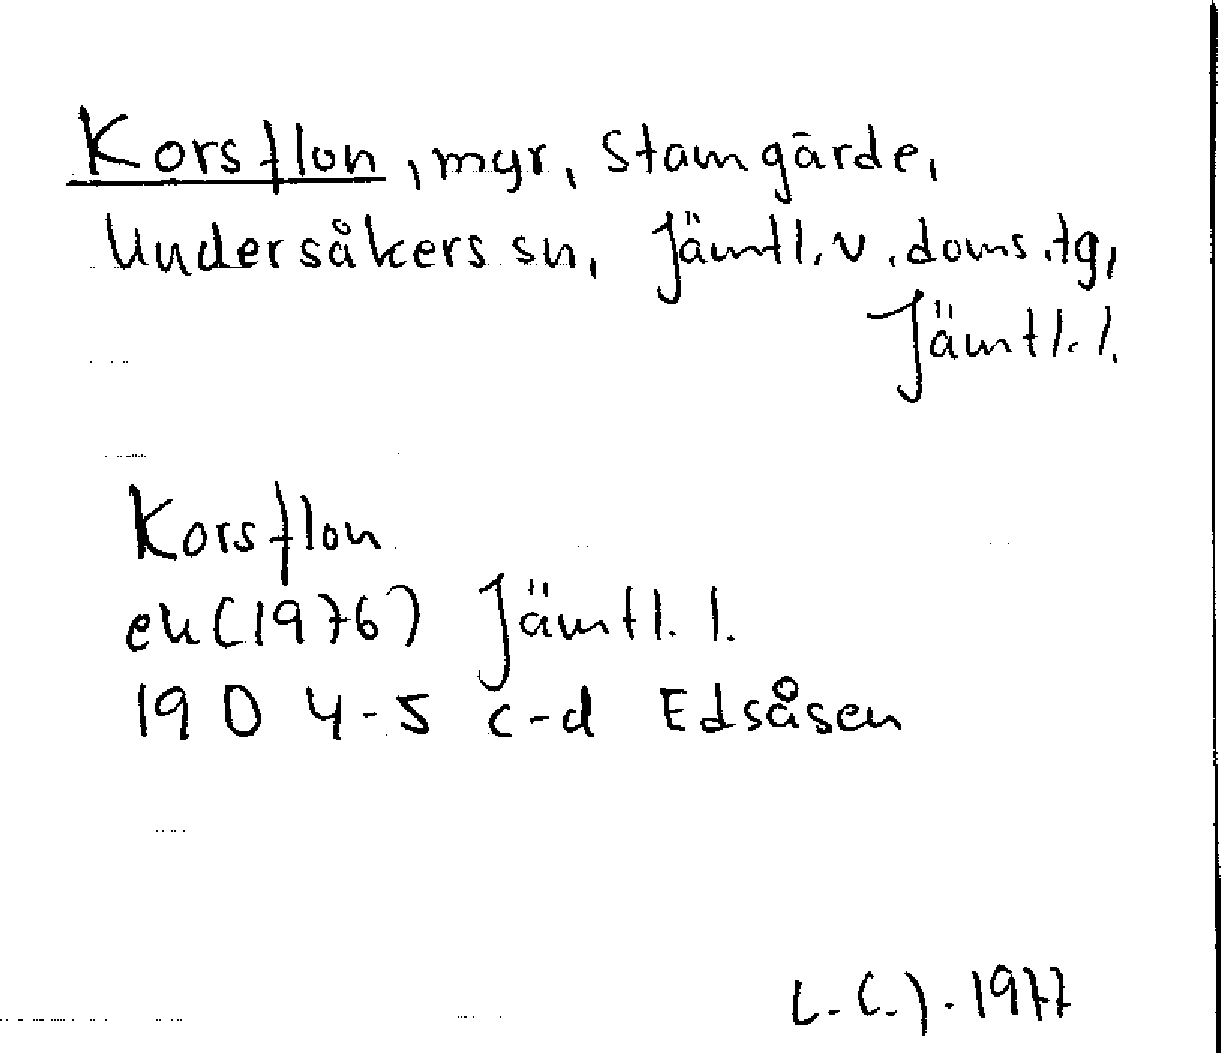 Korsflon, myr, Stamgärde,
Undersåkers sn, Jämtl. v. doms.tg,
Jämtl. l.
Korsflon
ek (1976) Jämtl. l.
19 D 4-5 c-d Edsåsen
L.C.J. 1977